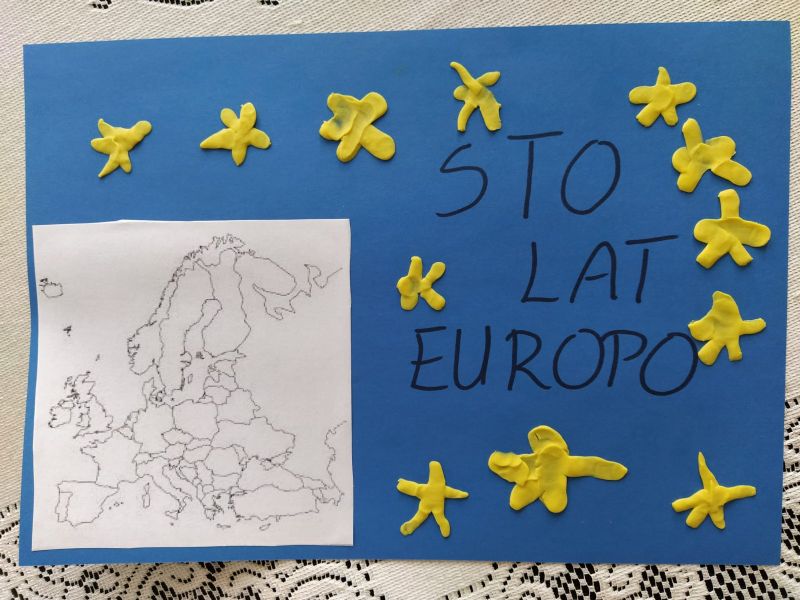 STO
LAT
EUROPO